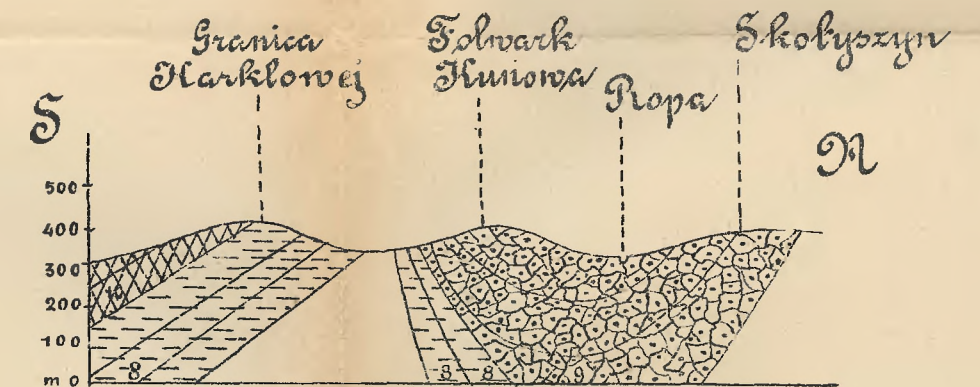 Granica
Harklowej
Folwark
Kunowa
Ropa
Skołyszyn
S
N
500
400
300
200
100
m 0
10
8
8
8
9